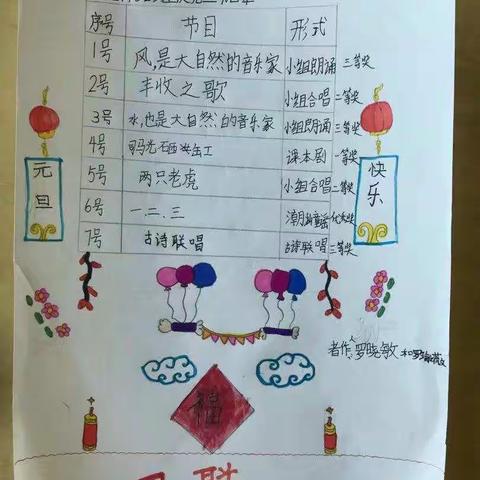 序号 节目 形式
1号 风,是大自然的音乐家 小组朗诵 三等奖
2号 丰收之歌 小组合唱 二等奖
3号 水,也是大自然的音乐家 小组朗诵 三等奖
4号 司马光砸缸 课本剧 一等奖
5号 两只老虎 小组合唱 二等奖
6号 一.二.三
7号 古诗联唱 古诗联唱 三等奖
元旦
快乐
者作人罗晓敏
福